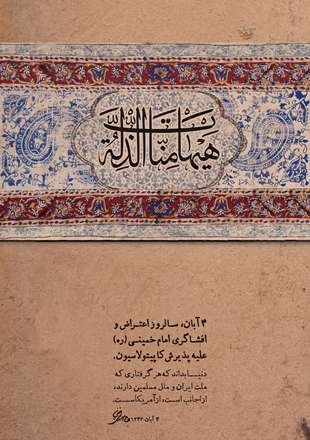 هیهات منا الذلة
۴ آبان، سالروز اعتراض و
افشاگری امام خمینی (ره)
علیه پذیرش کاپیتولاسیون.
دنیا بداند که هر گرفتاری که
ملت ایران و ملل مسلمین دارند،
از اجانب است، از آمریکاست.
۴ آبان ۱۳۴۳